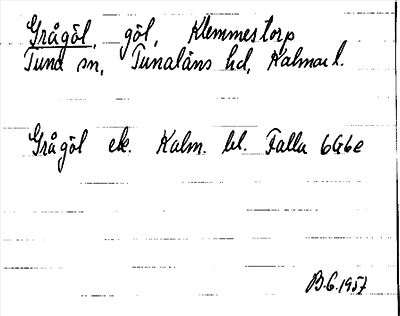 Grågöl, göl, Klemmestorp
Tuna sn, Tunaläns hd, Kalmar l.
Grågöl ek. Kalm. bl. Falla 6G6e
B.G. 1957